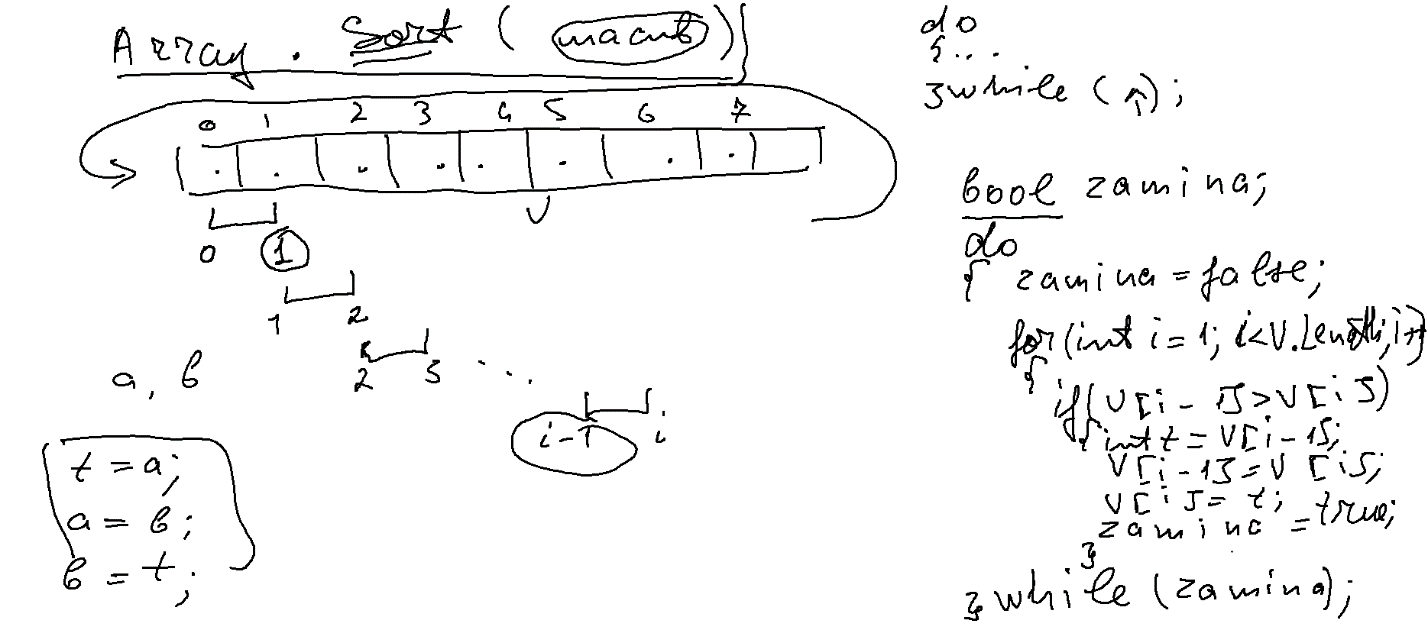 Array . Sort ( масив )
0 1 2 3 4 5 6 7
V
0 1
1 2
2 3 . . .
i-1 i
a, b
t = a;
a = b;
b = t;
do
{...
}while ( );
bool zamina;
do
{ zamina = false;
for(int i = 1; i<V.Length; i++)
{
if(V[i - 1]>V[i])
{int t = V[i-1];
V[i-1]=V[i];
V[i]= t;
zamina = true;
}
}while (zamina);